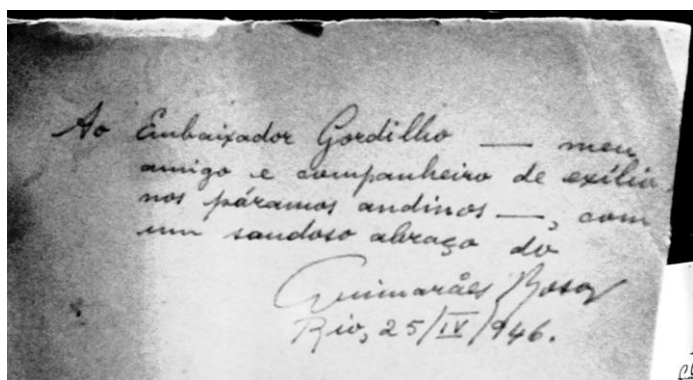 Ao Embaixador Gordilho — meu
amigo e companheiro de exílio
nos páramos andinos —, com
um saudoso abraço do
Guimarães Rosa
Rio, 25/IV/946.